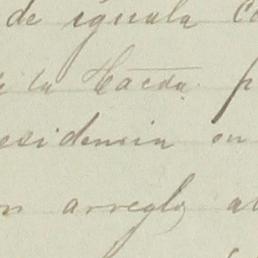 de iguala co
y la Hacda. p
esidencia en
on arreglo al